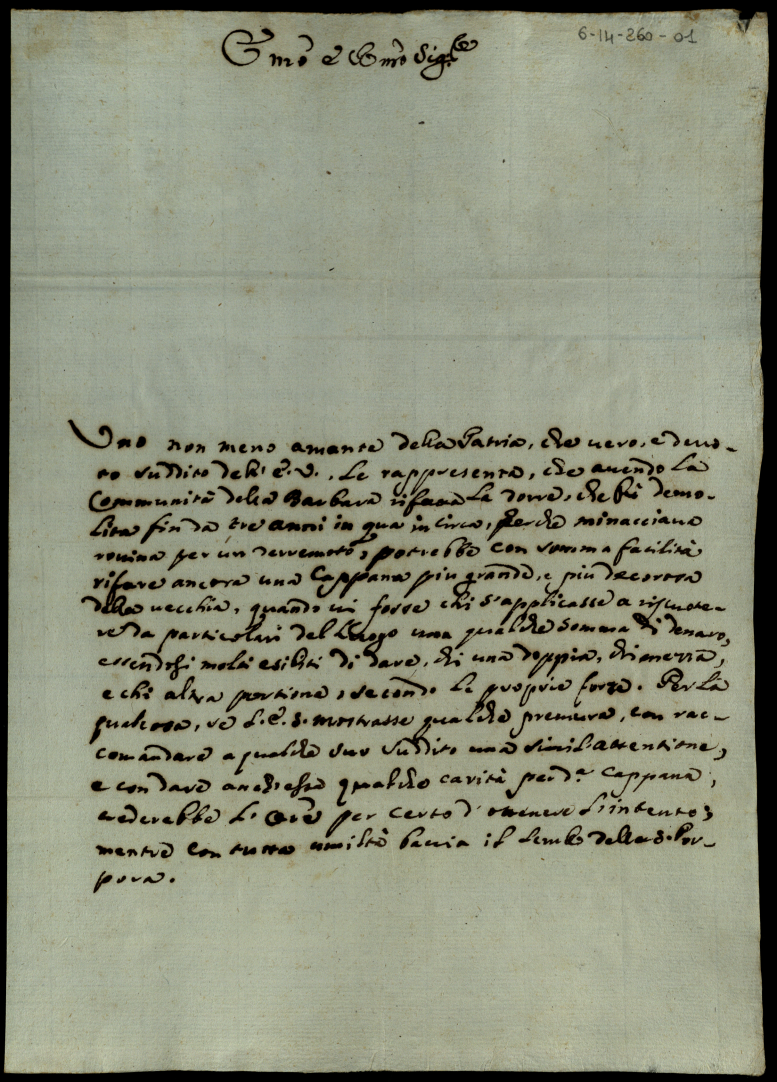 6-14-260-01
Em̃o e Rm̃o Sig.re
Uno non meno amante della Patria, che vero, e devo-
to suddito dell' E. V., Le rappresenta, che avendo la
Communità della Barbara rifatta la Torre, che fù demo-
lita fin da tre anni in qua in circa, perche minacciava
rovina per un terremoto, potrebbe con somma facilità
rifare ancora una Cappana più grande, e più decorosa
della vecchia, quando vi fosse chi s'applicasse a riscuote-
re da particolari del Luogo una qualche somma di denaro,
essendosi molti esibiti di dare, chi una doppia, chi mezza,
e chi altra portione, secondo le proprie forze. Per la
qualcosa, se l'E. S. mostrasse qualche premura, con rac-
comandare a qualche suo suddito una simil'attentione,
e con dare anch'essa qualche carità per d.a Cappana,
crederebbe l' Ore per certo d'ottenere l'intento;
mentre con tutta umiltà baccia il lembo della S. Por-
pora.